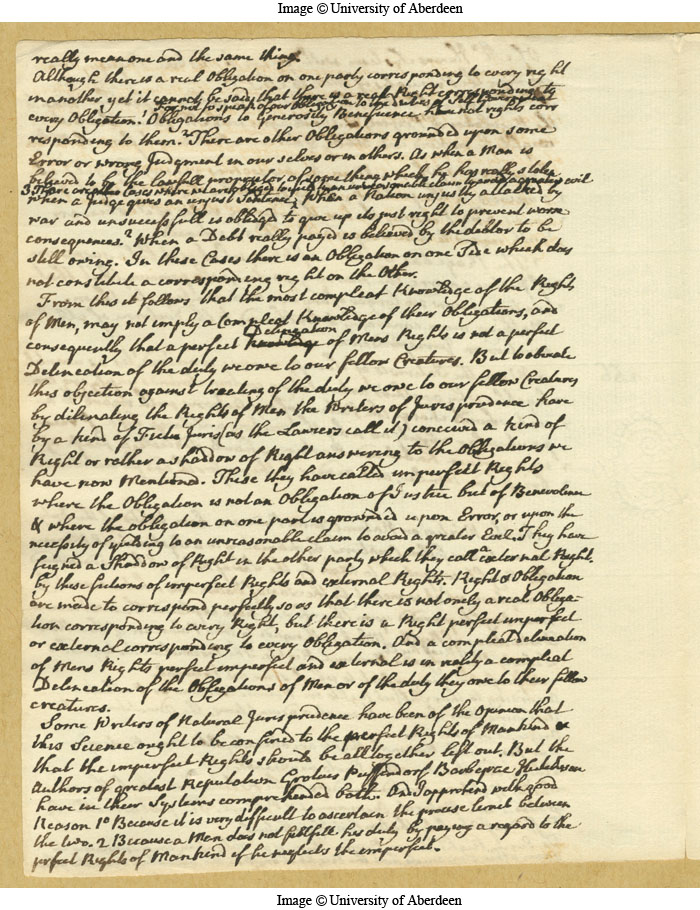 Image © University of Aberdeen
really mean one and the same thing.
Although there is a real Obligation on one party corresponding to every right
in another, yet it cannot be said that there is a real Right corresponding to
For not to speak of our Obligation to the duties of
every Obligation. 1 Obligations to Generosity Beneficence have not rights corr
responding to them. 2 There are other Obligations grounded upon some
Error or wrong Judgment in our selves or in others. As when a Man is
believed to be the lawfull proprietor of some thing which he has really stolen
3 There are other Cases where we are obliged to yield to an unreasonable claim to avoid a greater evil
when a Judge gives an unjust Sentence, When a Nation unjustly attacked by
war and unsuccessfull is obliged to give up its just right to prevent worse
consequences. 2 When a Debt really payed is believed by the debtor to be
still owing. In these Cases there is an Obligation on one Side which does
not constitute a corresponding right on the Other.
From this it follows that the most compleat Knowledge of the Rights
of Men, may not imply a Compleat Knowledge of their Obligations, and
Delineation
consequently that a perfect Knowledge of Mens Rights is not a perfect
Delineation of the duty we owe to our fellow Creatures. But to obviate
this objection against treating of the duty we owe to our fellow Creatures
by delineating the Rights of Men the Writers of Jurisprudence have
by a kind of Fictio Juris (as the Lawiers call it) conceived a kind of
Right or rather a shadow of Right answering to the Obligations we
have now Mentioned. These they have called imperfect Rights
where the Obligation is not an Obligation of Justice but of Benevolence
& where the obligation on one part is grounded upon Error, or upon the
necessity of yielding to an unreasonable claim to avoid a greater Evil. They have
feigned a Shaddow of Right in the other party which they call a external Right.
by these fictions of imperfect Rights and external Rights. Right & Obligation
are made to correspond perfectly so as that there is not onely a real Obliga-
tion corresponding to every Right, but there is a Right perfect imperfect
or external corresponding to every Obligation. And a compleat delineation
of Mens Rights perfect imperfect and external is in reality a compleat
Delineation of the Obligations of Men or of the duty they owe to their fellow
creatures.
Some Writers of Natural Jurisprudence have been of the Opinion that
this Science ought to be confined to the perfect Rights of Mankind &
that the imperfect Rights should be alltogether left out. But the
Authors of greatest Reputation Grotius Puffendorf Barbeyrac Hutcheson
have in their Systems comprehended both. And I apprehend with good
Reason 1o Because it is very difficult to ascertain the precise limit between
the two. 2 Because a Man does not fullfill his duty by paying a regard to the
perfect Rights of Mankind if he neglects the imperfect.
Image © University of Aberdeen